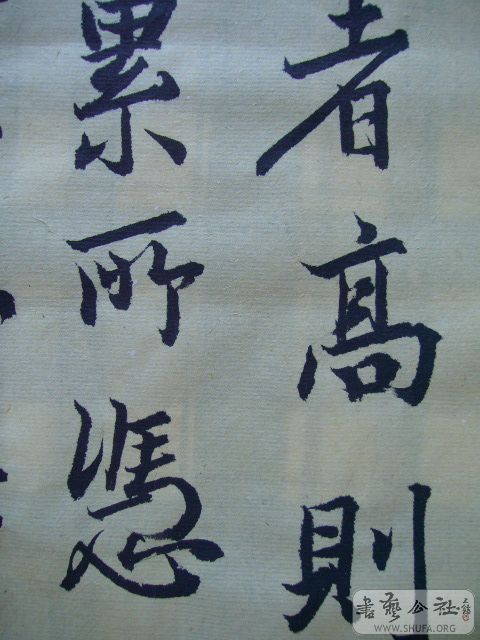 者高則
累所憑
書藝公社
WWW.SHUFA.ORG